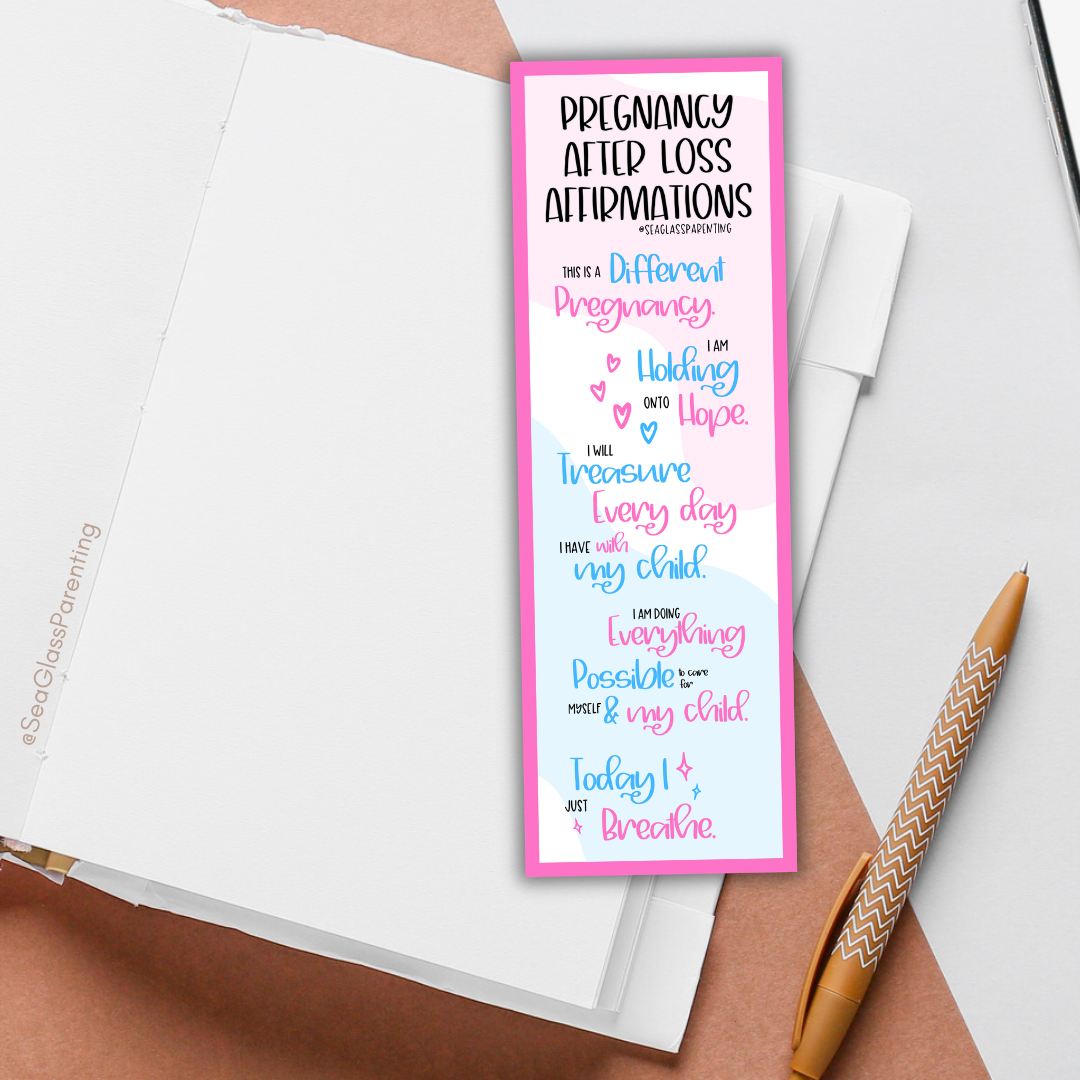 PREGNANCY
AFTER LOSS
AFFIRMATIONS
@SEAGLASSPARENTING
THIS IS A Different
Pregnancy.
I AM
Holding
ONTO Hope.
I WILL
Treasure
Every day
I HAVE with
my child.
I AM DOING
Everything
Possible to care
for
MYSELF & my child.
Today I
JUST
Breathe.
@SeaGlassParenting